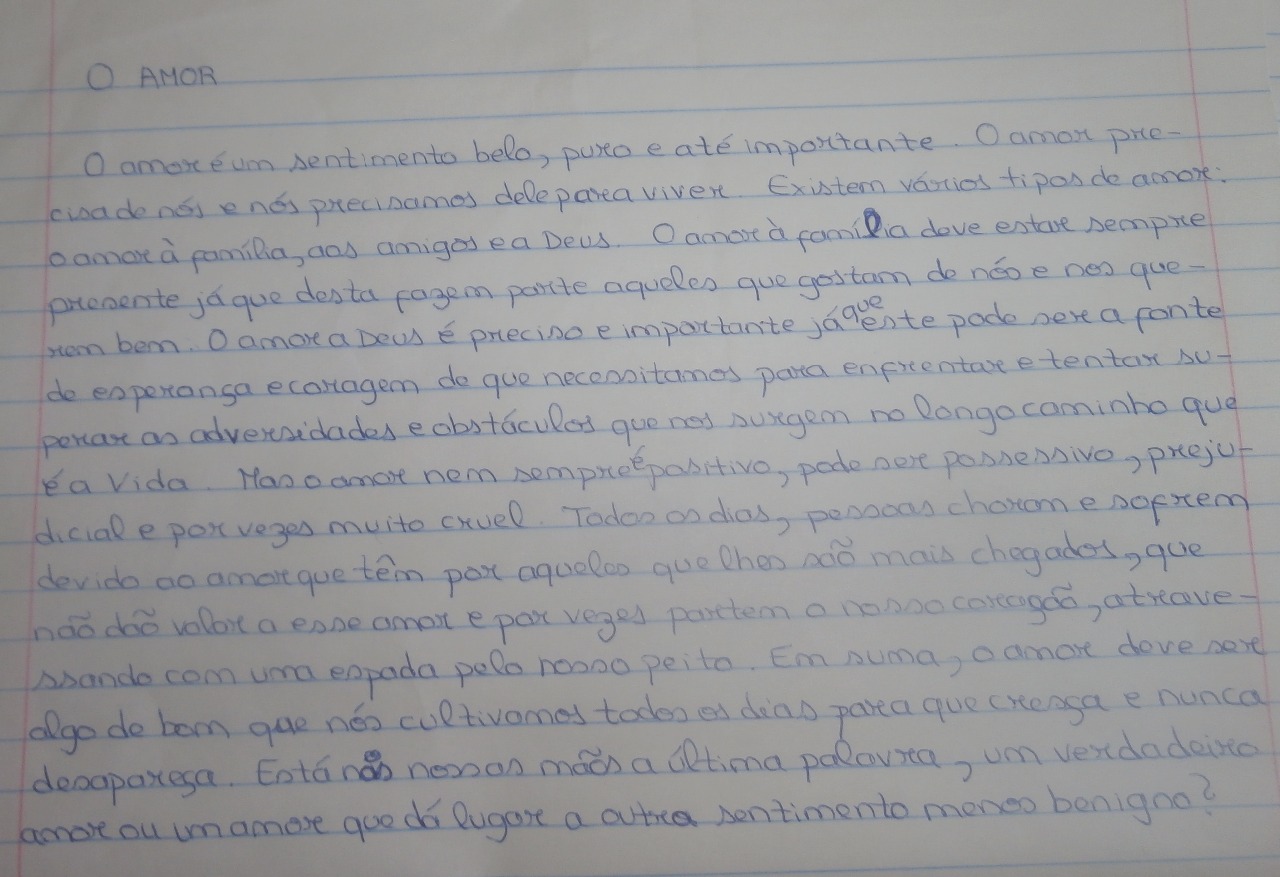 O AMOR
O amor é um sentimento belo, puro e até importante. O amor pre-
cisa de nós e nós precisamos dele para viver. Existem vários tipos de amor:
o amor à família, aos amigos e a Deus. O amor à família deve estar sempre
presente já que desta fazem parte aqueles que gostam de nós e nos que-
rem bem. O amor a Deus é preciso e importante já que este pode ser a fonte
de esperança e coragem de que necessitamos para enfrentar e tentar su-
perar as adversidades e obstáculos que nos surgem no longo caminho que
é a vida. Mas o amor nem sempre é positivo, pode ser possessivo, preju-
dicial e por vezes muito cruel. Todos os dias, pessoas choram e sofrem
devido ao amor que têm por aqueles que lhes são mais chegados, que
não dão valor a esse amor e por vezes partem o nosso coração, atrave-
ssando com uma espada pelo nosso peito. Em suma, o amor deve ser
algo de bom que nós cultivamos todos os dias para que cresça e nunca
desapareça. Está nas nossas mãos a última palavra, um verdadeiro
amor ou um amor que dá lugar a outro sentimento menos benigno?